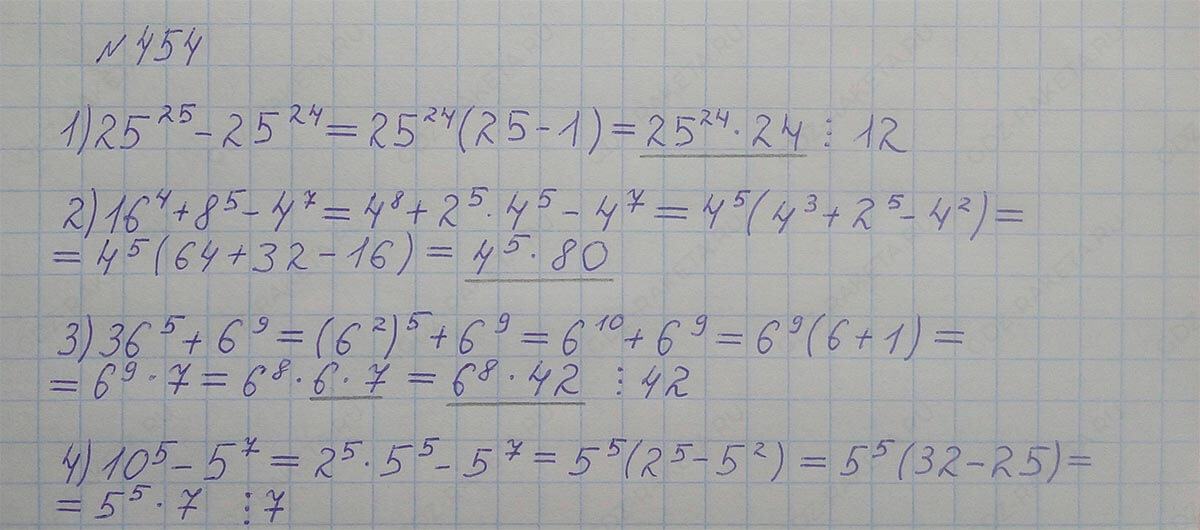 №454
1) 25²⁵ - 25²⁴ = 25²⁴(25 - 1) = 25²⁴ · 24 ⋮ 12
2) 16⁴ + 8⁵ - 4⁷ = 4⁸ + 2⁵ · 4⁵ - 4⁷ = 4⁵(4³ + 2⁵ - 4²) =
= 4⁵(64 + 32 - 16) = 4⁵ · 80
3) 36⁵ + 6⁹ = (6²)⁵ + 6⁹ = 6¹⁰ + 6⁹ = 6⁹(6 + 1) =
= 6⁹ · 7 = 6⁸ · 6 · 7 = 6⁸ · 42 ⋮ 42
4) 10⁵ - 5⁷ = 2⁵ · 5⁵ - 5⁷ = 5⁵(2⁵ - 5²) = 5⁵(32 - 25) =
= 5⁵ · 7 ⋮ 7